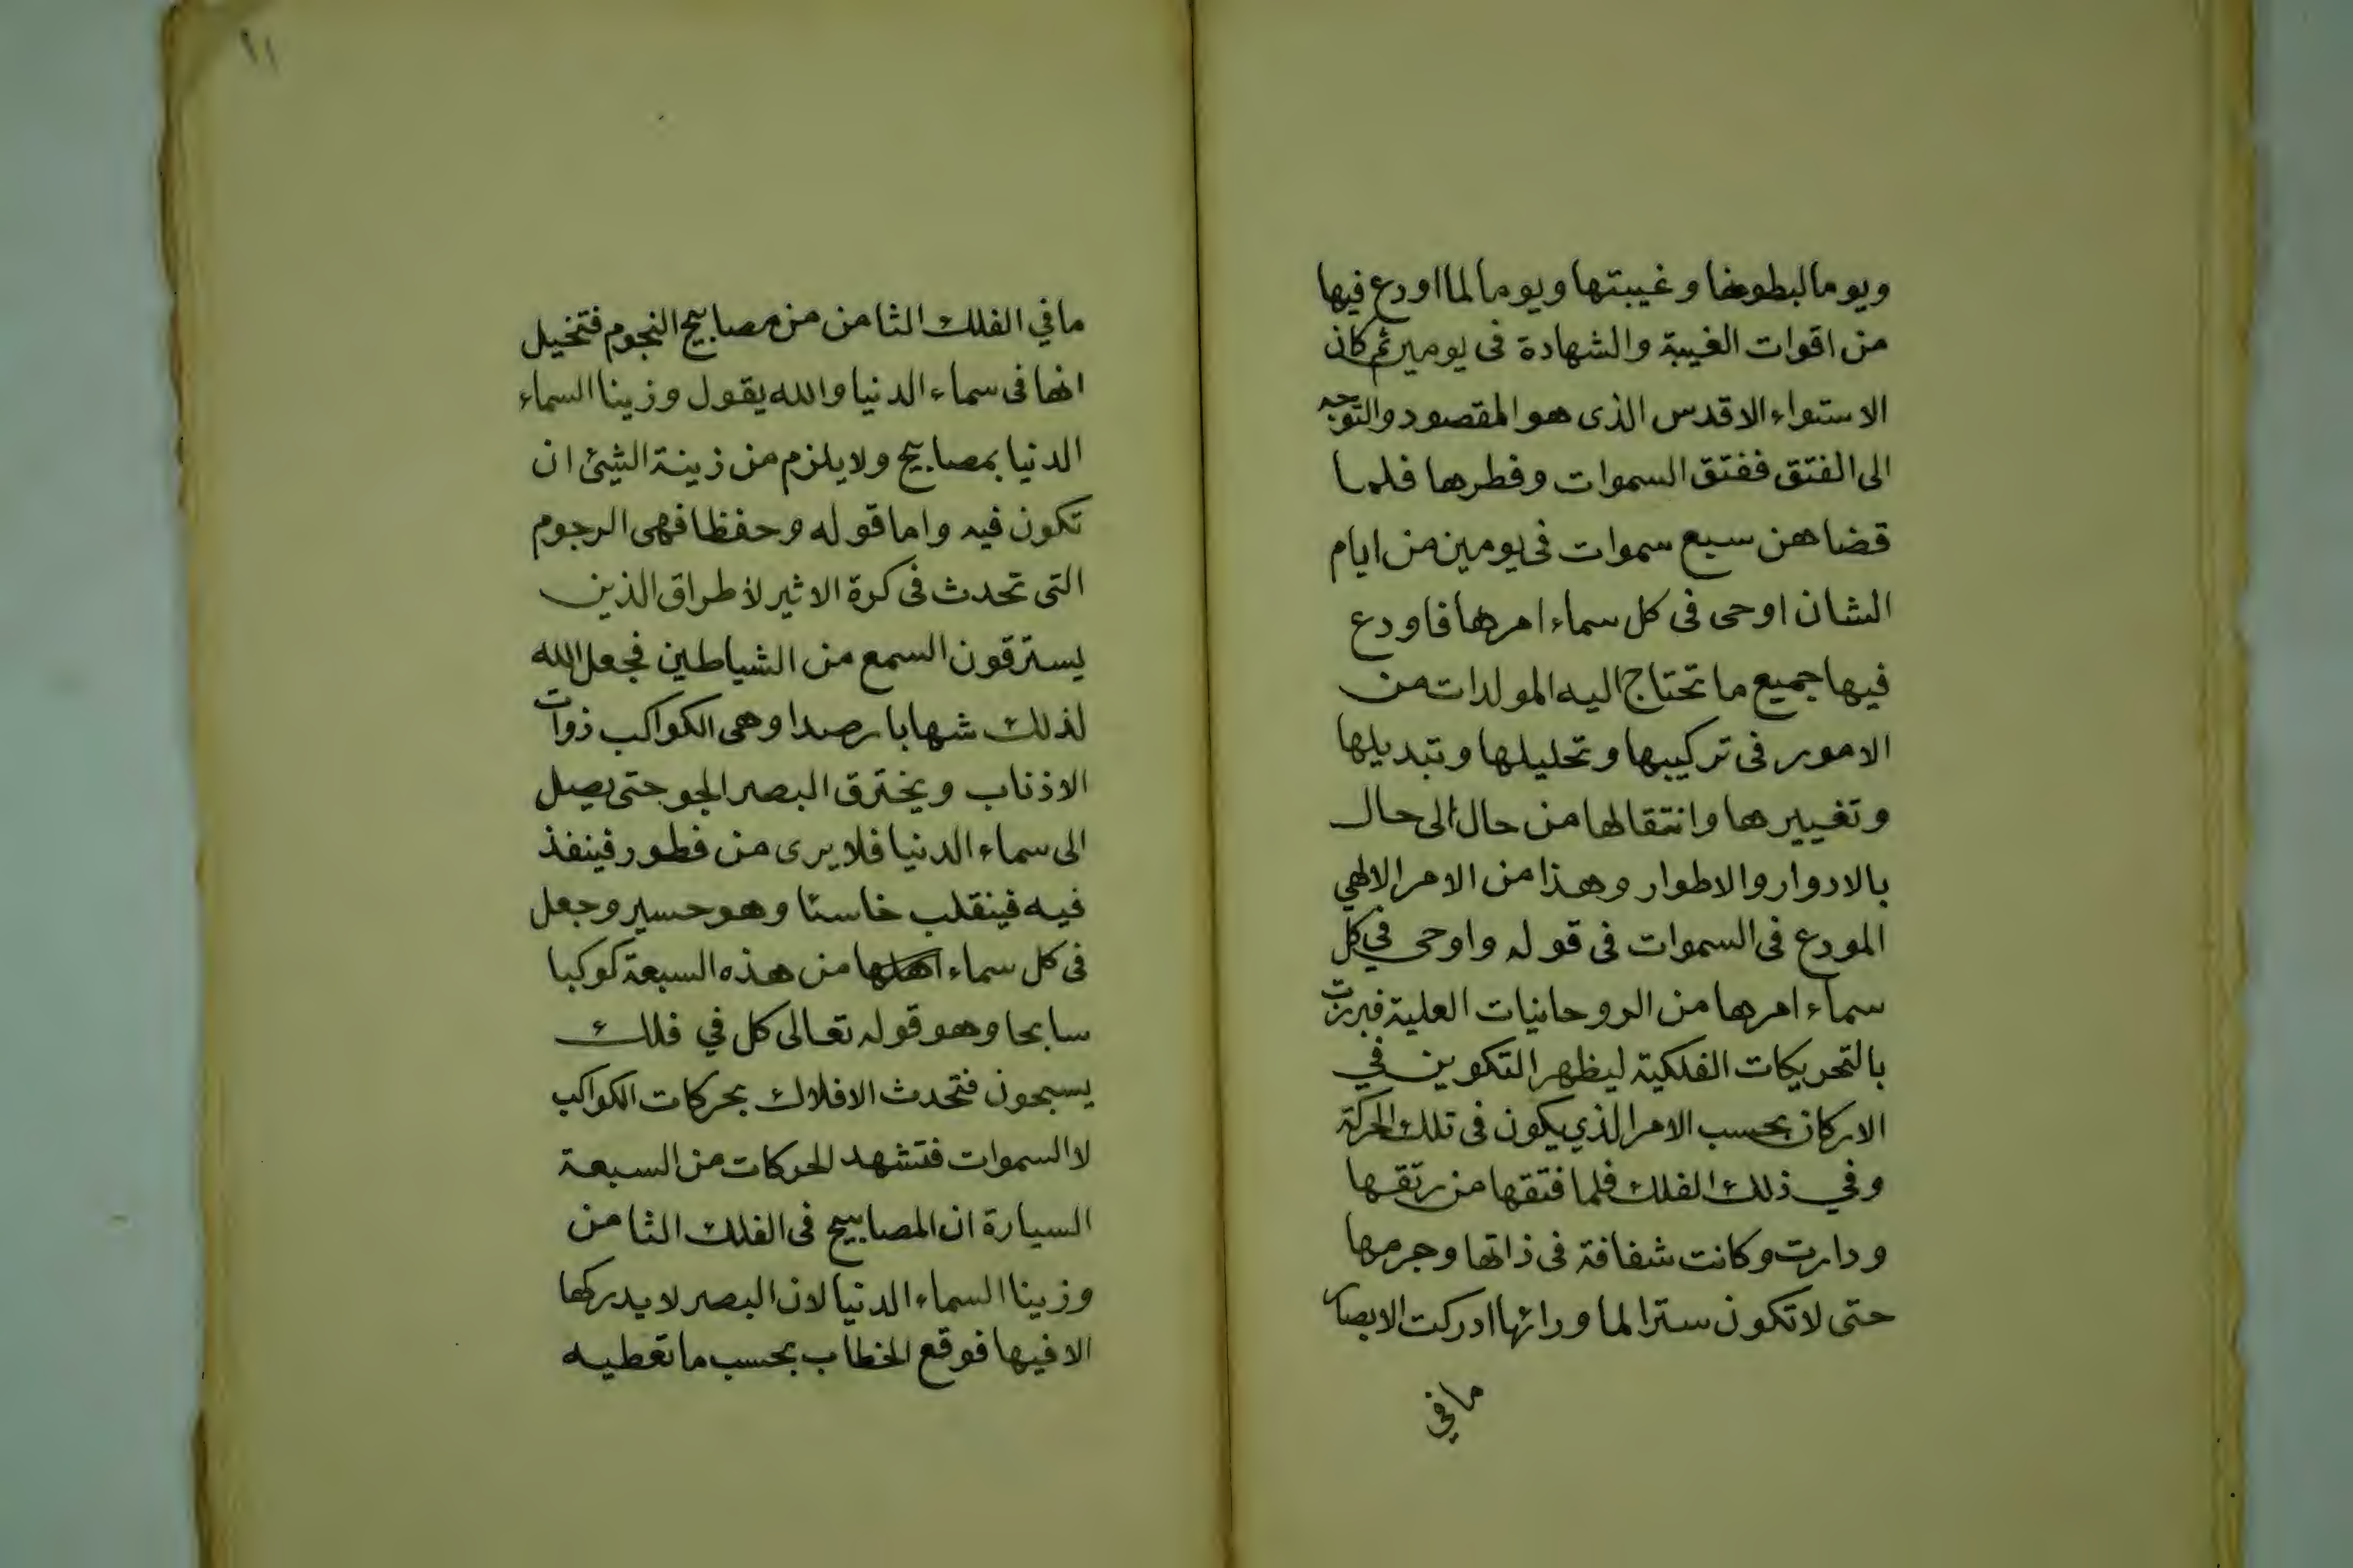 ويوما لبطونها وغيبتها ويوما لما اودع فيها
من اقوات الغيبة والشهادة فى يومين ثم كان
الاستواء الاقدس الذى هو المقصود والتوجه
الى الفتق ففتق السموات وفطرها فلما
قضاهن سبع سموات فى يومين من ايام
الشان اوحى فى كل سماء امرها فاودع
فيها جميع ما تحتاج اليه المولدات من
الامور فى تركيبها وتحليلها وتبديلها
وتغييرها وانتقالها من حال الى حال
بالادوار والاطوار وهذا من الامر الالهي
المودع فى السموات فى قوله واوحى في كل
سماء امرها من الروحانيات العلية فبرزت
بالتحريكات الفلكية ليظهر التكوين في
الاركان بحسب الامر الذي يكون فى تلك الحركة
وفي ذلك الفلك فلما فتقها من رتقها
ودارت وكانت شفافة فى ذاتها وجرمها
حتى لا تكون سترا لما ورائها ادركت الابصار
ما في
١١
ما في الفلك الثامن من مصابيح النجوم فتخيل
انها فى سماء الدنيا والله يقول وزينا السماء
الدنيا بمصابيح ولا يلزم من زينة الشئ ان
تكون فيه واما قوله وحفظا فهى الرجوم
التى تحدث فى كرة الاثير لاطراق الذين
يسترقون السمع من الشياطين فجعل الله
لذلك شهابا رصدا وهى الكواكب ذوات
الاذناب ويخترق البصر الجو حتى يصل
الى سماء الدنيا فلا يرى من فطور فينفذ
فيه فينقلب خاسئا وهو حسير وجعل
فى كل سماء من هذه السبعة كوكبا
سابحا وهو قوله تعالى كل في فلك
يسبحون فتحدث الافلاك بحركات الكواكب
لا السموات فتشهد الحركات من السبعة
السيارة ان المصابيح فى الفلك الثامن
وزينا السماء الدنيا لان البصر لا يدركها
الا فيها فوقع الخطاب بحسب ما تعطيه